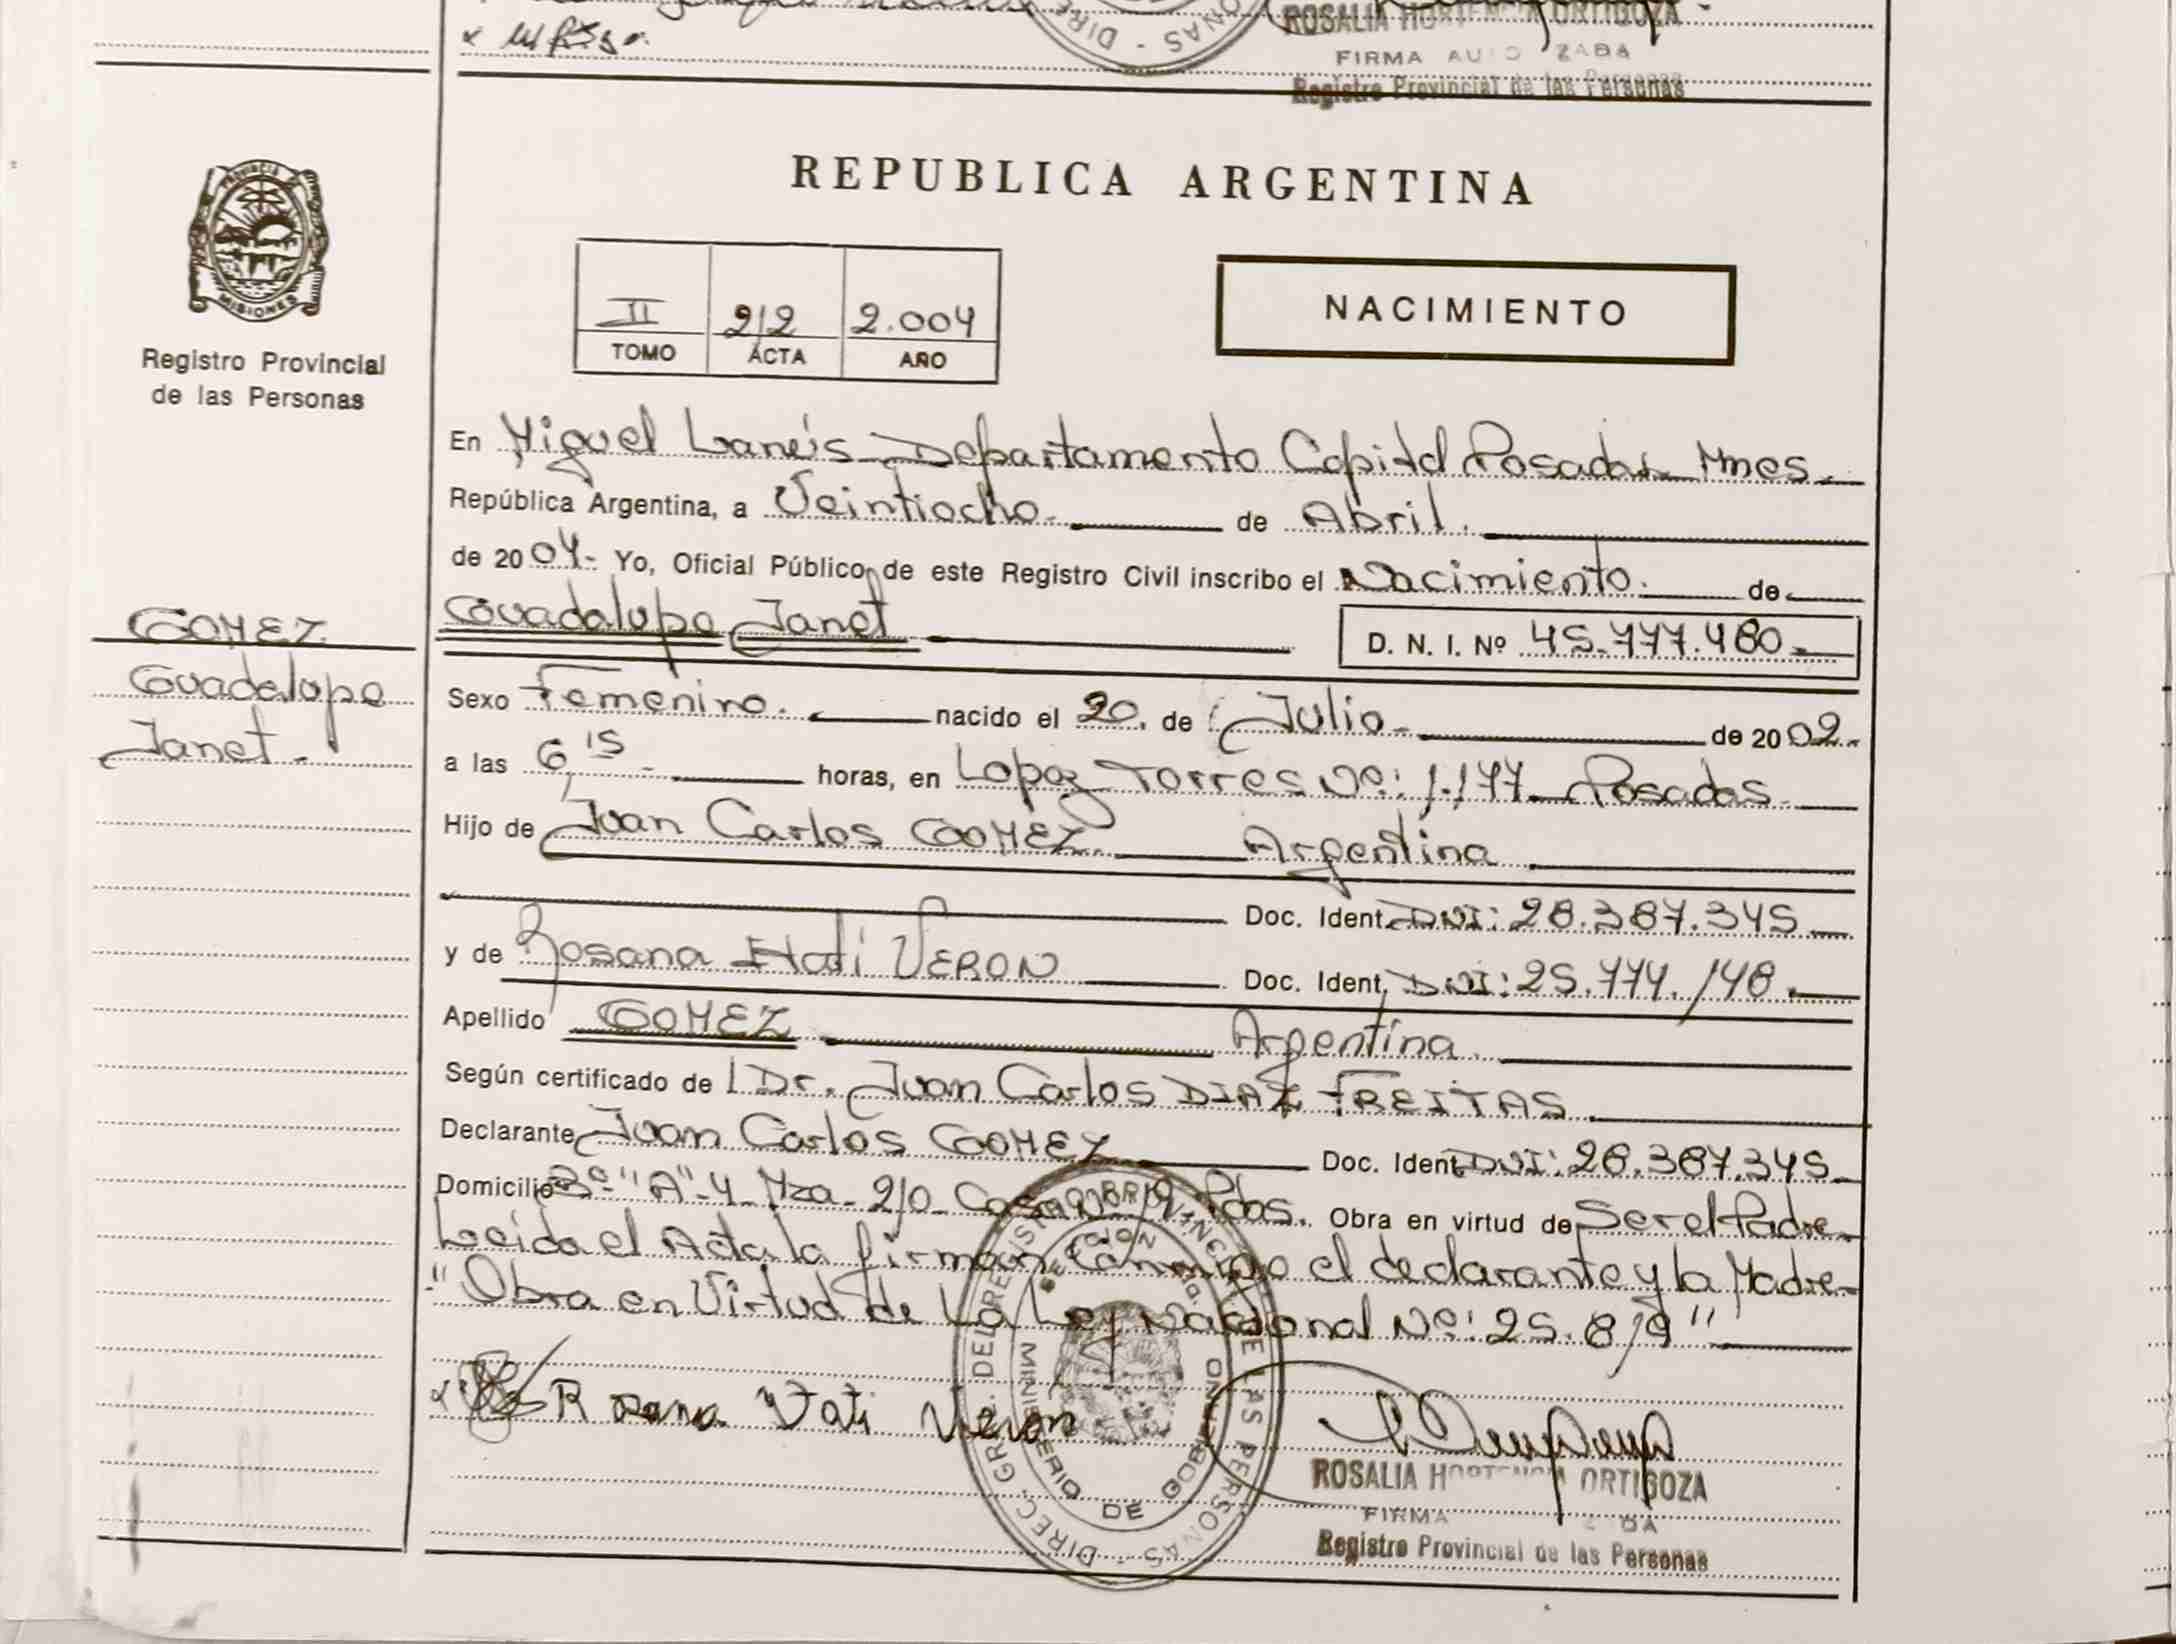 ROSALIA HORTENCIA ORTIGOZA
FIRMA AUTORIZADA
Registro Provincial de las Personas
REPUBLICA ARGENTINA
PROVINCIA DE
MISIONES
Registro Provincial
de las Personas
II 212 2.004
TOMO ACTA AÑO
NACIMIENTO
En Miguel Lanús Departamento Capital Posadas Mnes.
República Argentina, a Veintiocho de Abril.
de 2004- Yo, Oficial Público de este Registro Civil inscribo el Nacimiento. de
Guadalupe Janet
D. N. I. Nº 45.777.480.
GOMEZ
Guadalupe
Janet.
Sexo Femenino. nacido el 20. de Julio. de 2002.
a las 6,15 horas, en Lopez Torres Nº: 1.177 Posadas.
Hijo de Juan Carlos GOMEZ. Argentina
Doc. Ident. DNI: 28.387.345
y de Rosana Itatí VERON Doc. Ident. DNI: 25.774.148.
Apellido GOMEZ Argentina.
Según certificado de l Dr. Juan Carlos DIAZ FREITAS.
Declarante Juan Carlos GOMEZ Doc. Ident. DNI: 28.387.345
Domicilio Bº "A"-4 Mza- 210 Casa Nº 19 Pdas. Obra en virtud de Ser el Padre
Leída el Acta la firman Conmigo el declarante y la Madre-
"Obra en Virtud de La Ley Nacional Nº: 25.819"
Rosana Itati Veron
DIREC. GRAL. DEL REGISTRO PROVINCIAL DE LAS PERSONAS
MINISTERIO DE GOBIERNO
ROSALIA HORTENCIA ORTIGOZA
FIRMA
Registro Provincial de las Personas